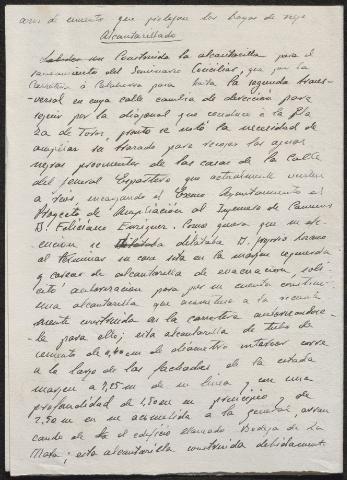 de cemento que protejan las bocas de riego
Alcantarillado
Construida la alcantarilla para el
saneamiento del Seminario Conciliar, que por la
Carretera á Calahorra para hasta la segunda trans-
versal en cuya calle cambia de dirección para
seguir por la diagonal que conduce á la Pla
za de Toros, pronto se notó la necesidad de
ampliar su trazado para recoger las aguas
negras procedentes de las casas de la Calle
del General Espartero que actualmente vierten
a ríos, encargando el Excmo Ayuntamiento el
Proyecto de Ampliación al Ingeniero de Caminos
D. Feliciano Enríquez. Como quiera que su eje-
cución se dilataba D. Lozano
al terminar su casa sita en la margen izquierda
y careces de alcantarilla de evacuación, soli-
citó autorización para por su cuenta construir
una alcantarilla que acometiese a la
construida en la carretera autorizandose-
le para ello; esta alcantarilla de tubo de
cemento de 0,40 m de diámetro interior corre
a lo largo de las fachadas de la citada
margen a 7,25 m de su línea y con una
profundidad de 1,50 m en principio y de
2,50 m en su acometida á la general, arran
cando de el edificio llamado Bodega de La
Mata; esta alcantarilla construida debidament